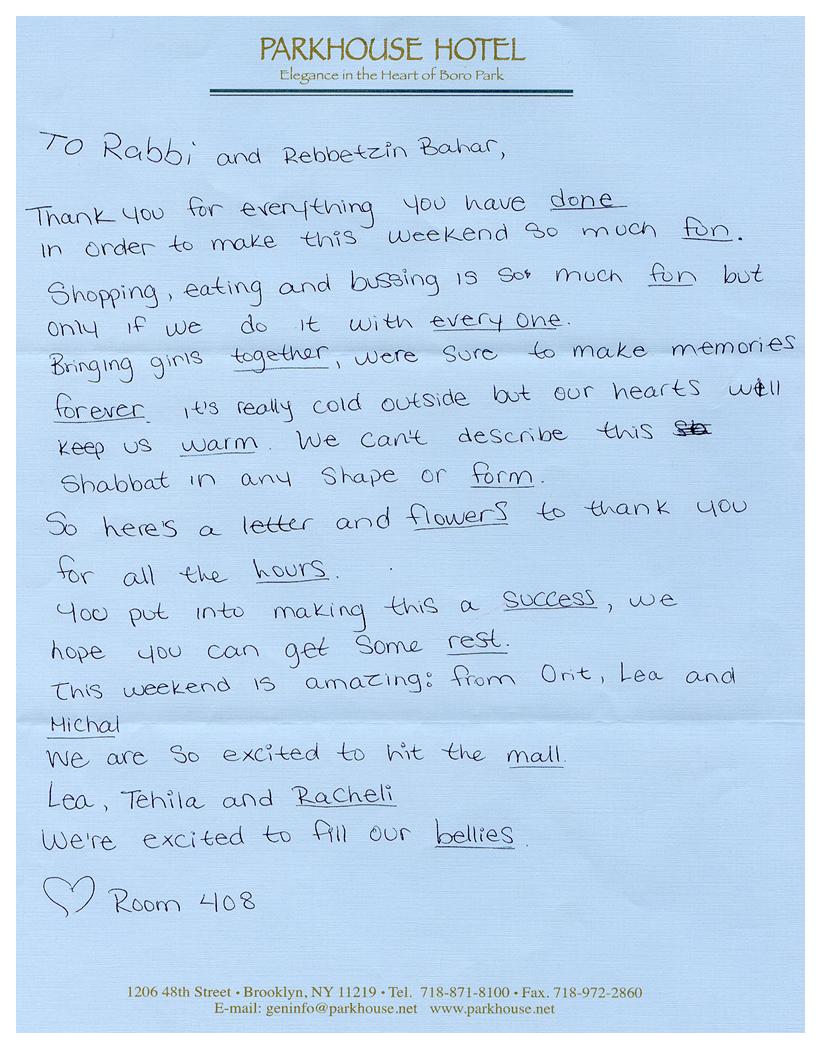 PARKHOUSE HOTEL
Elegance in the Heart of Boro Park
TO Rabbi and Rebbetzin Bahar,
Thank you for everything you have done
in order to make this weekend so much fun.
Shopping, eating and bussing is so much fun but
only if we do it with every one.
Bringing girls together, were sure to make memories
forever. it's really cold outside but our hearts will
keep us warm. We can't describe this
Shabbat in any shape or form.
So here's a letter and flowers to thank you
for all the hours.
you put into making this a success, we
hope you can get some rest.
This weekend is amazing: from Orit, Lea and
Michal
We are so excited to hit the mall.
Lea, Tehila and Racheli
We're excited to fill our bellies.
♡ Room 408
1206 48th Street • Brooklyn, NY 11219 • Tel. 718-871-8100 • Fax. 718-972-2860
E-mail: geninfo@parkhouse.net www.parkhouse.net